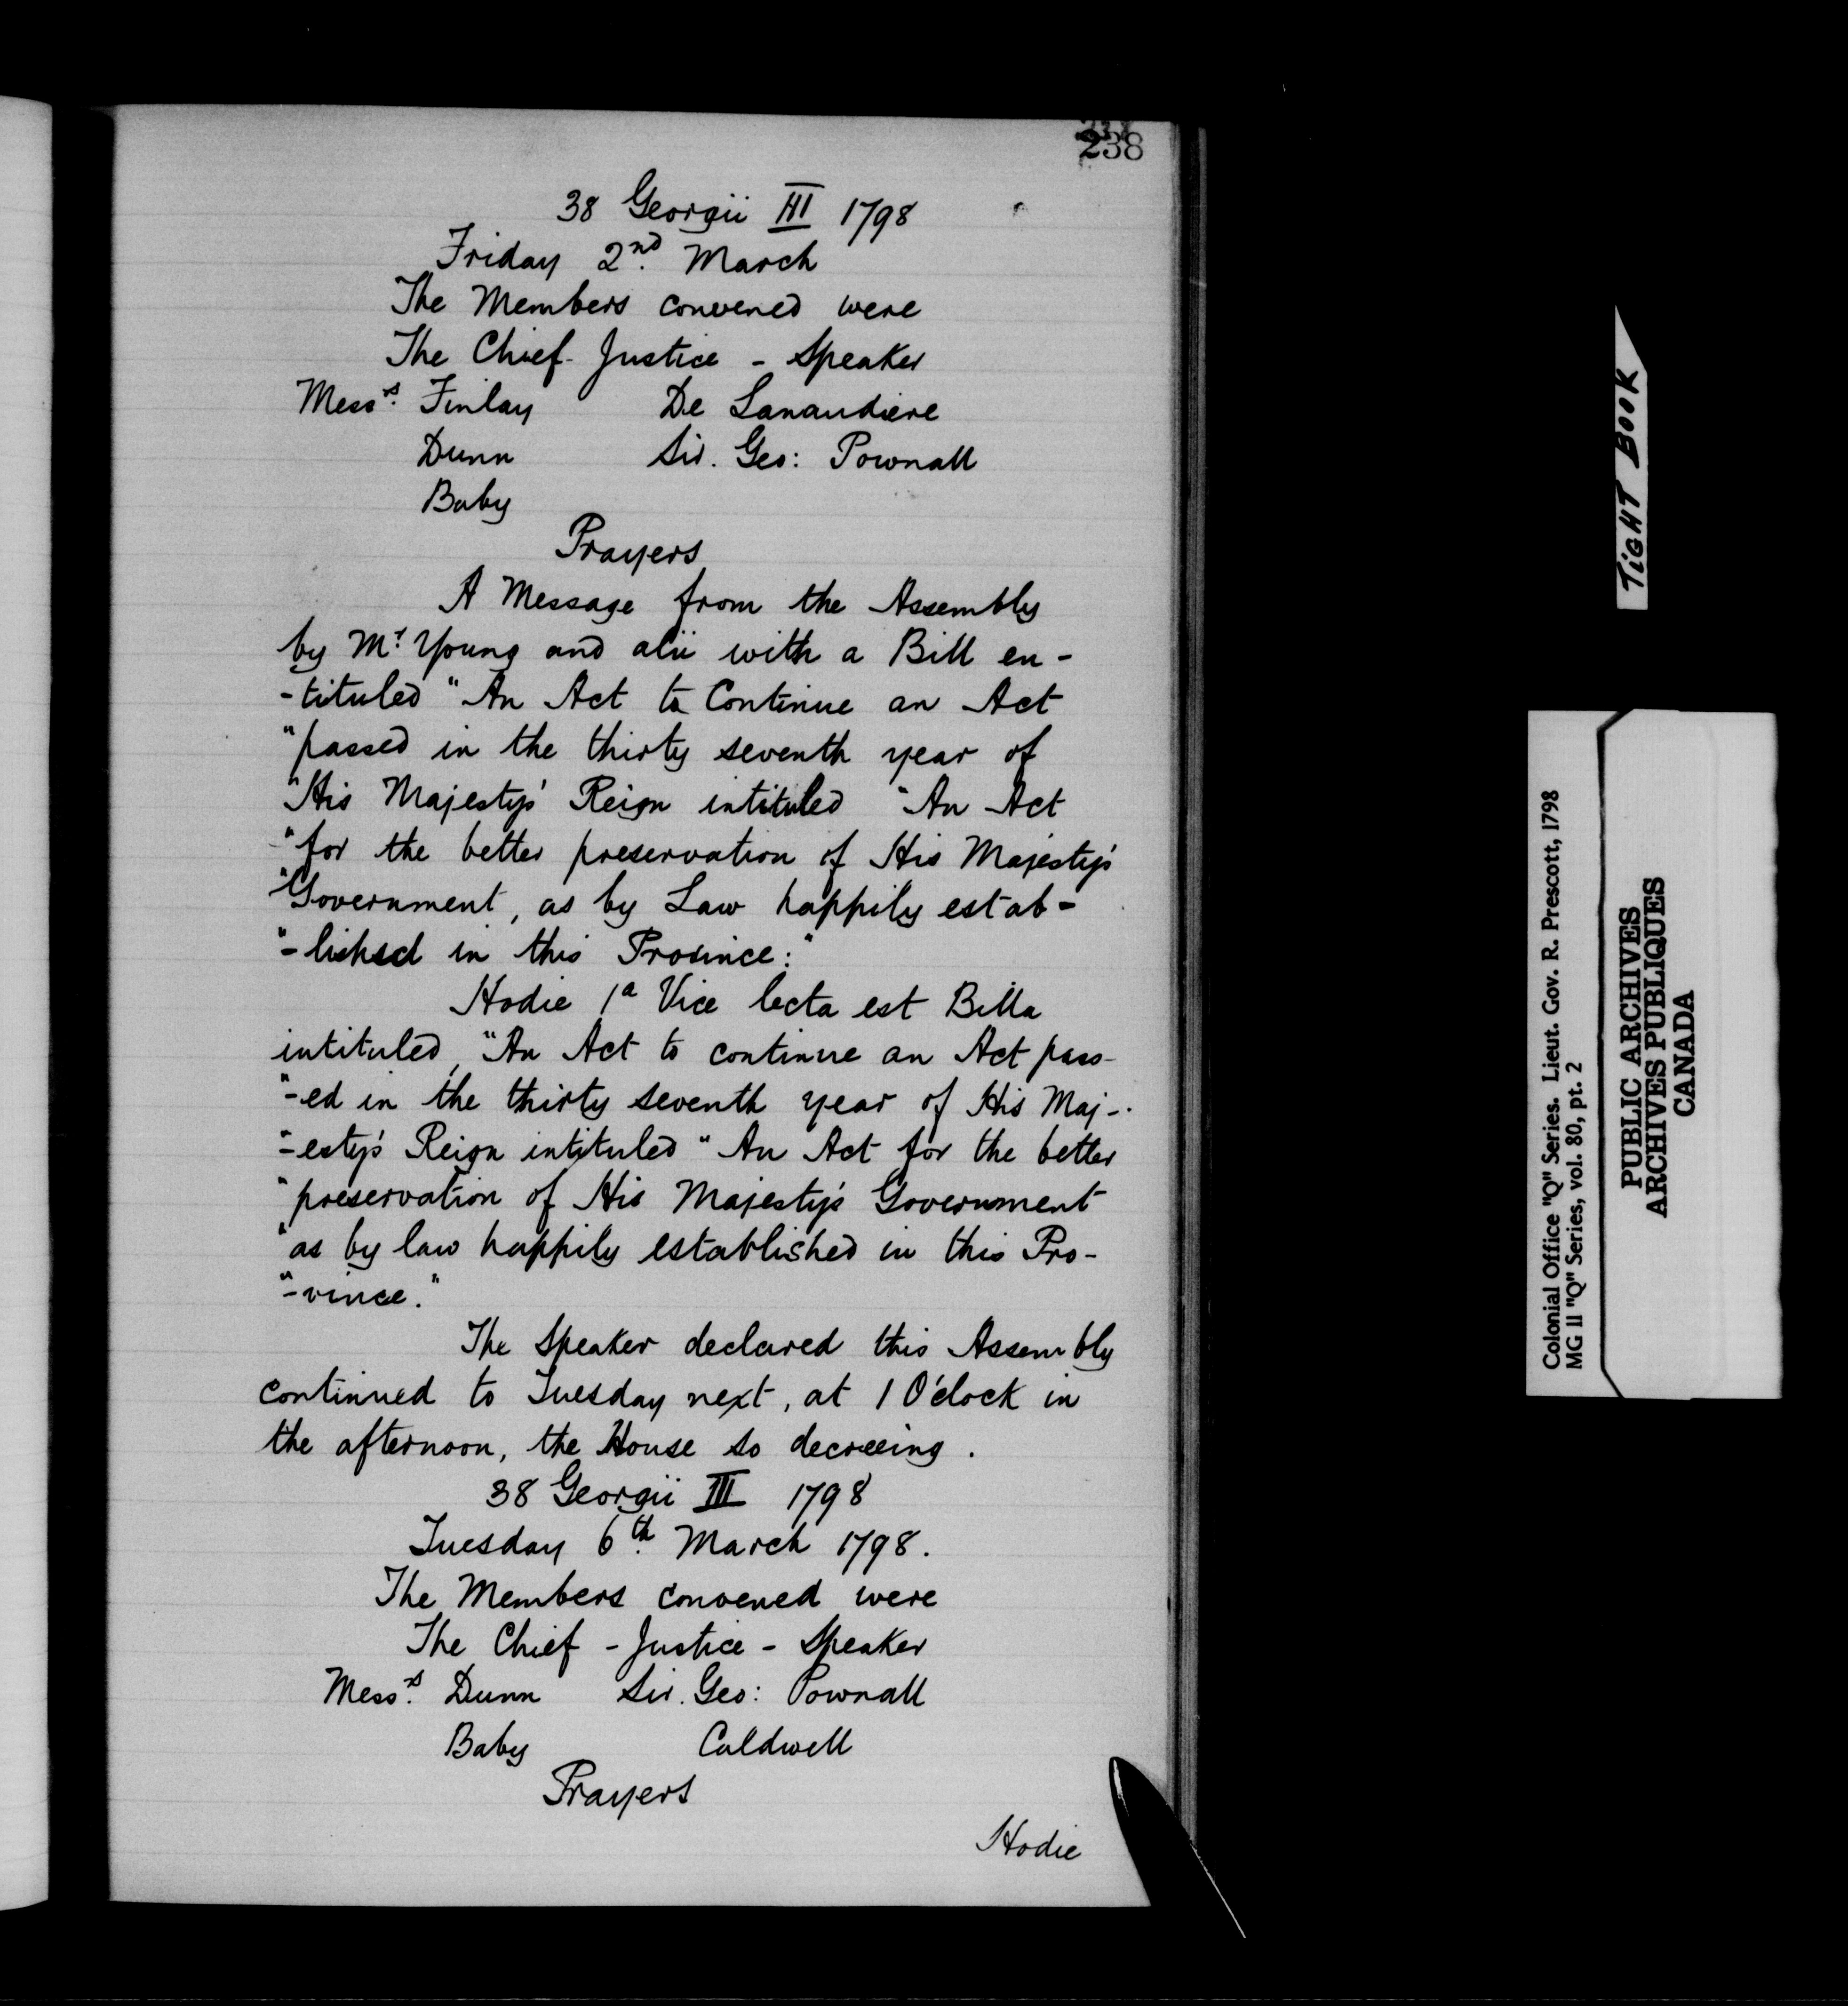 238
38 Georgii III 1798
Friday 2nd. March
The Members convened were
The Chief-Justice - Speaker
Messrs. Finlay De Lanaudiere
Dunn Sir. Geo: Pownall
Baby
Prayers
A Message from the Assembly
by Mr. Young and alii with a Bill en-
-tituled "An Act to Continue an Act
"passed in the thirty seventh year of
"His Majesty's Reign intituled "An Act
"for the better preservation of His Majesty's
"Government, as by Law happily estab-
"-lished in this Province:"
Hodie 1a Vice lecta est Billa
intituled, "An Act to continue an Act pass-
"-ed in the thirty seventh year of His Maj-
"-esty's Reign intituled "An Act for the better
"preservation of His Majesty's Government
"as by law happily established in this Pro-
"-vince."
The Speaker declared this Assembly
continued to Tuesday next, at 1 O'clock in
the afternoon, the House so decreeing.
38 Georgii III 1798
Tuesday 6th. March 1798.
The Members convened were
The Chief-Justice - Speaker
Messrs. Dunn Sir. Geo: Pownall
Baby Caldwell
Prayers
Hodie
TIGHT BOOK
Colonial Office "Q" Series. Lieut. Gov. R. Prescott, 1798
MG 11 "Q" Series, vol. 80, pt. 2
PUBLIC ARCHIVES
ARCHIVES PUBLIQUES
CANADA